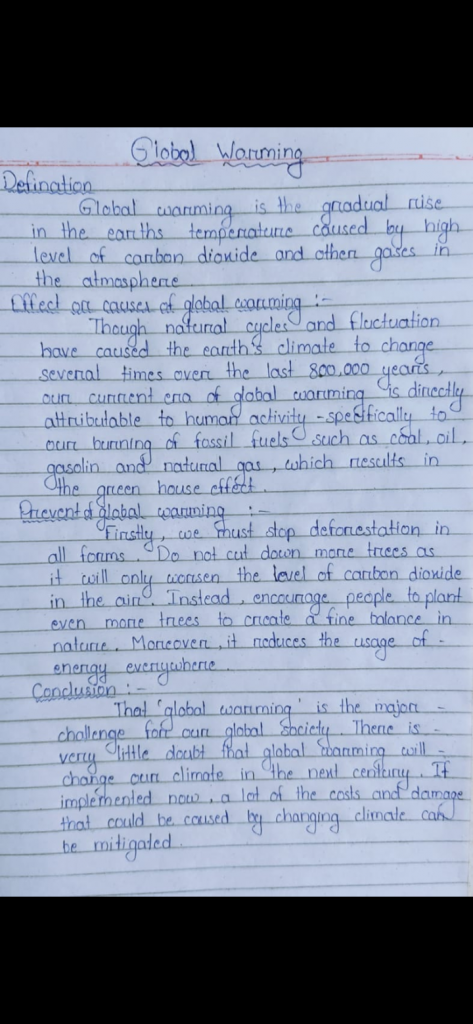 Global Warming
Defination
Global warming is the gradual rise
in the earths temperature caused by high
level of carbon dioxide and other gases in
the atmosphere
Effect or causes of global warming :-
Though natural cycles and fluctuation
have caused the earth's climate to change
several times over the last 800,000 years,
our current era of global warming is directly
attributable to human activity - spefifically to
our burning of fossil fuels such as coal, oil,
gasolin and natural gas, which results in
the green house effect.
Prevent of global warming :-
Firstly, we must stop deforestation in
all forms. Do not cut down more trees as
it will only worsen the level of carbon dioxide
in the air. Instead, encourage people to plant
even more trees to create a fine balance in
nature. Moreover, it reduces the usage of -
energy everywhere.
Conclusion :-
That 'global warming' is the major -
challenge for our global society. There is -
very little doubt that global warming will -
change our climate in the next century. If
implemented now, a lot of the costs and damage
that could be caused by changing climate can
be mitigated.